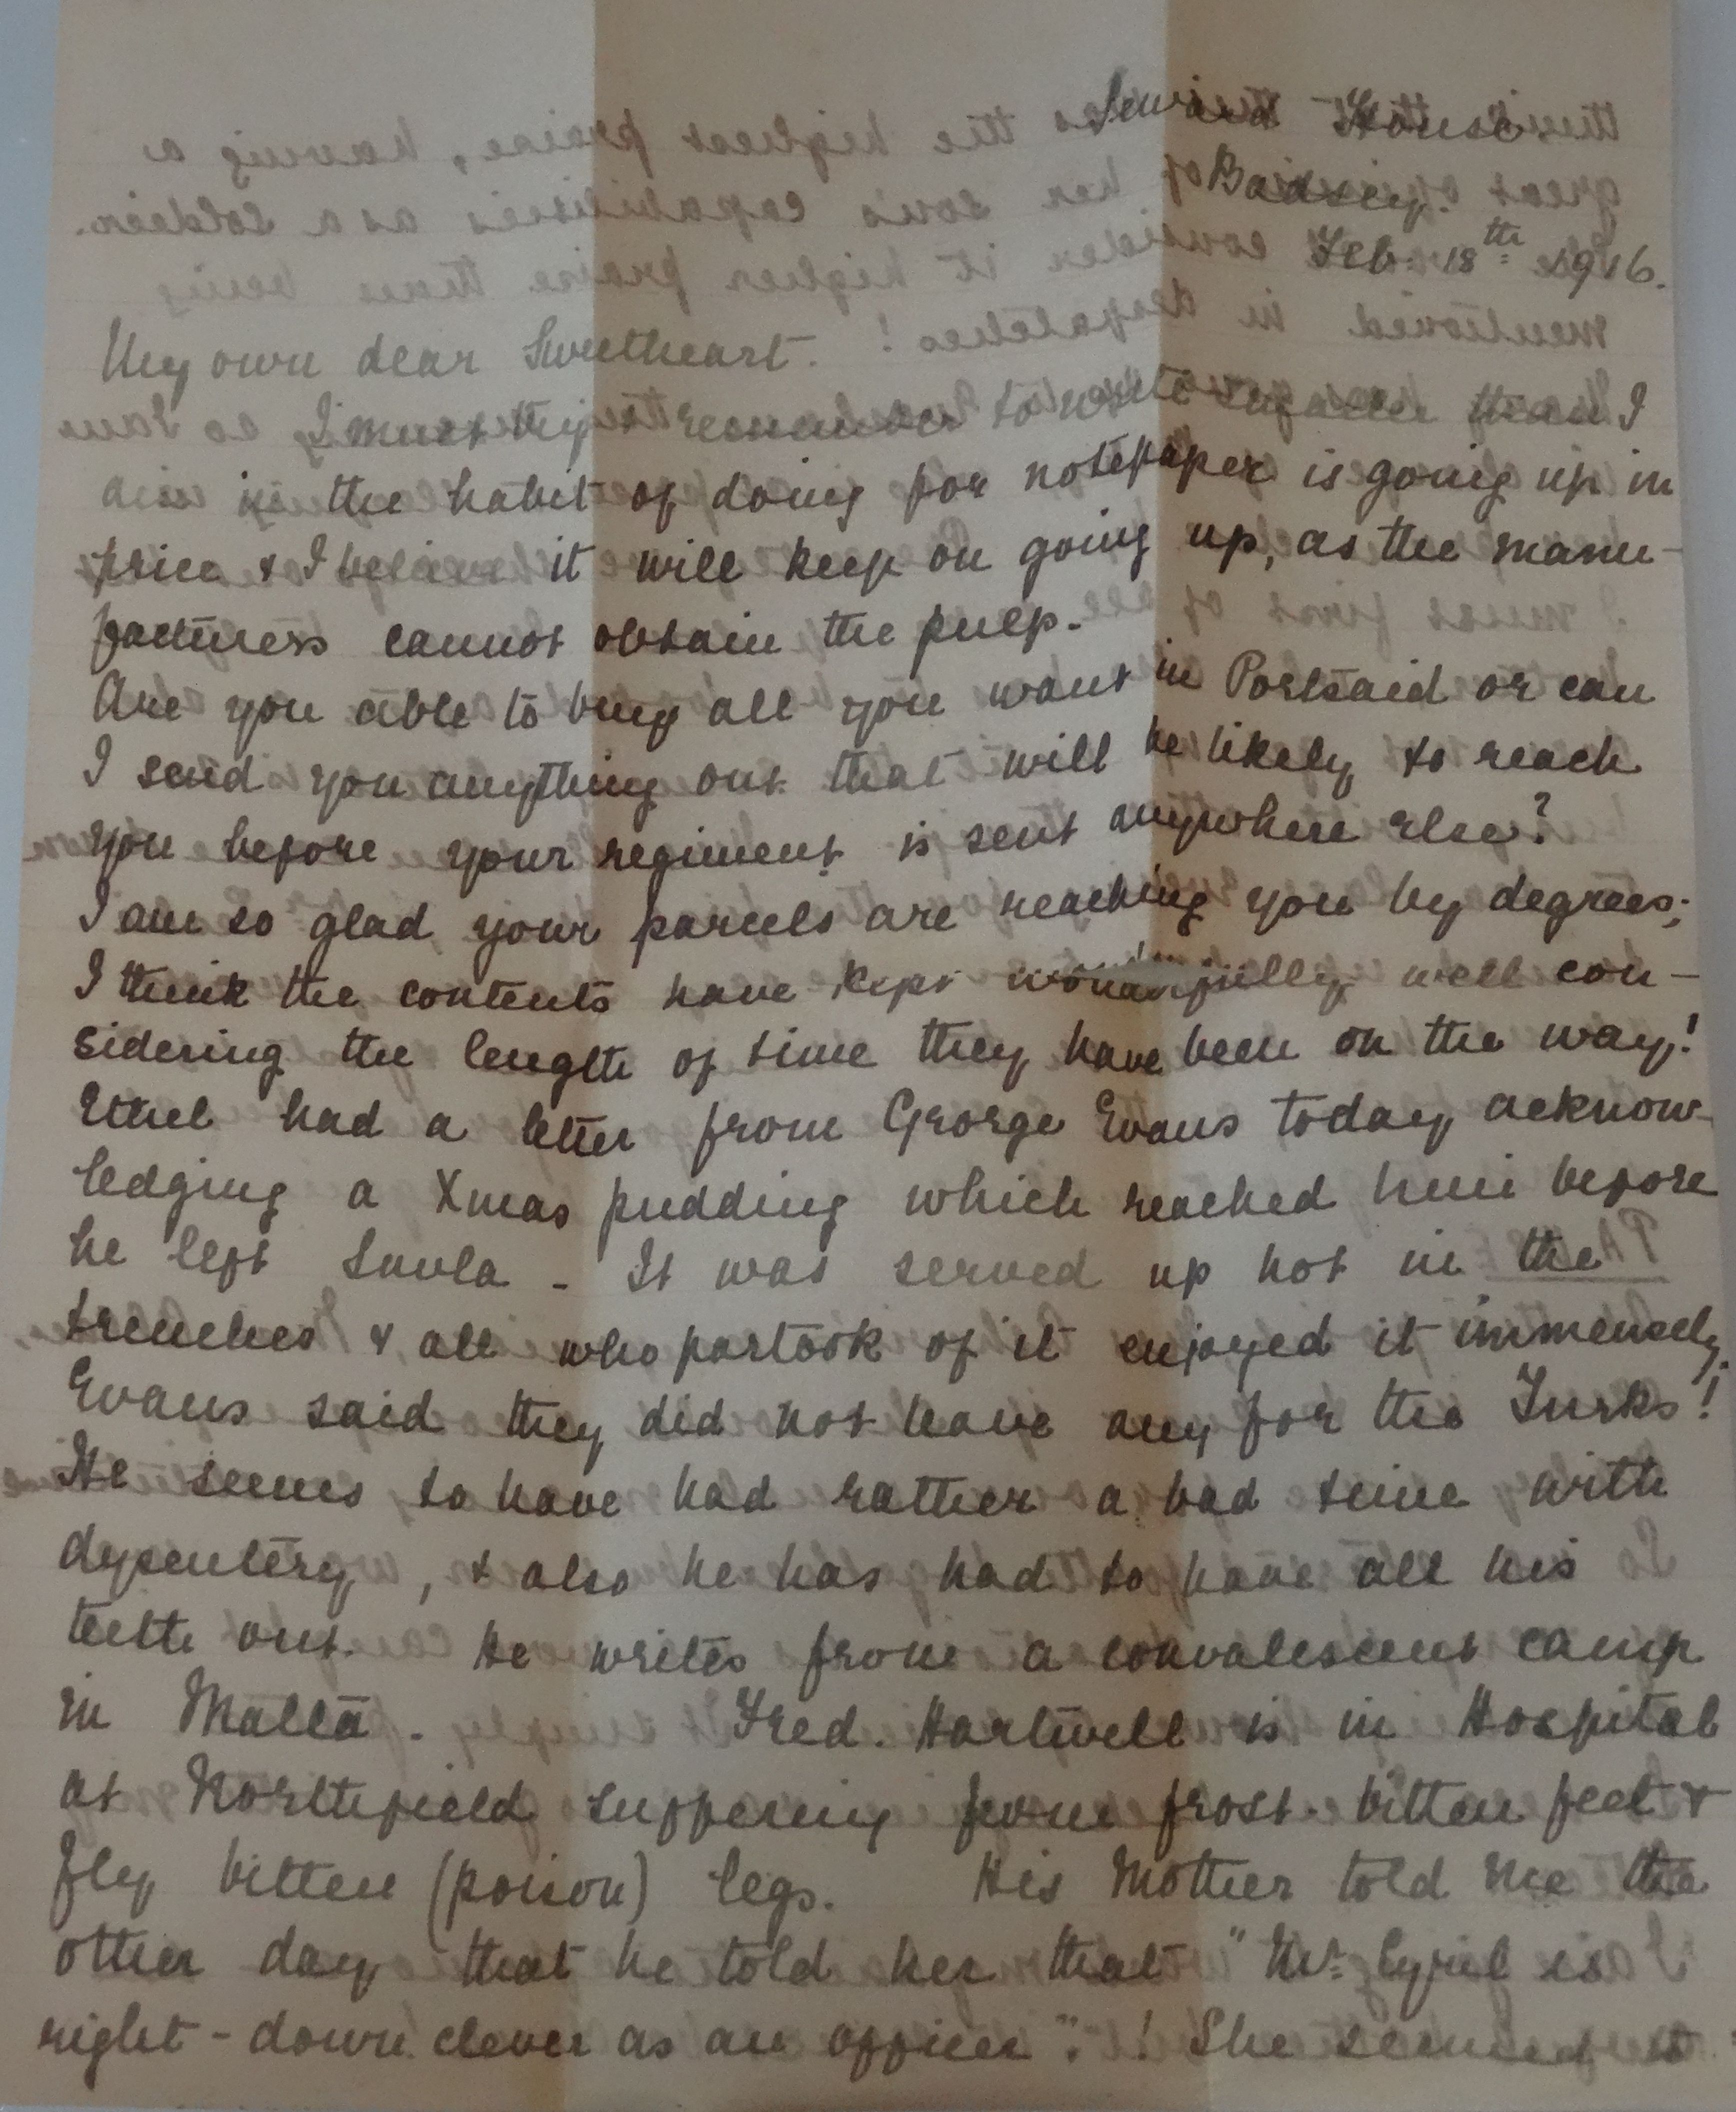 Seward House
Badsey.
Feb. 18th 1916.
My own dear Sweetheart.
I must try & remember to write smaller than I
am in the habit of doing for notepaper is going up in
price & I believe it will keep on going up, as the manu-
facturers cannot obtain the pulp.
Are you able to buy all you want in Portsaid or can
I send you anything out that will be likely to reach
you before your regiment is sent anywhere else?
I am so glad your parcels are reaching you by degrees;
I think the contents have kept wonderfully well con-
sidering the length of time they have been on the way!
Ethel had a letter from George Evans today acknow-
ledging a Xmas pudding which reached him before
he left Suvla - It was served up hot in the
trenches & all who partook of it enjoyed it immensely.
Evans said they did not leave any for the Turks!
He seems to have had rather a bad time with
dysentery, & also he has had to have all his
teeth out. He writes from a convalescent camp
in Malta. Fred. Hartwell is in Hospital
at Northfield suffering from frost-bitten feet &
fly bitten (poison) legs. His Mother told me the
other day that he told her that "Mr. Cyril is
right-down clever as an officer"! She seemed to